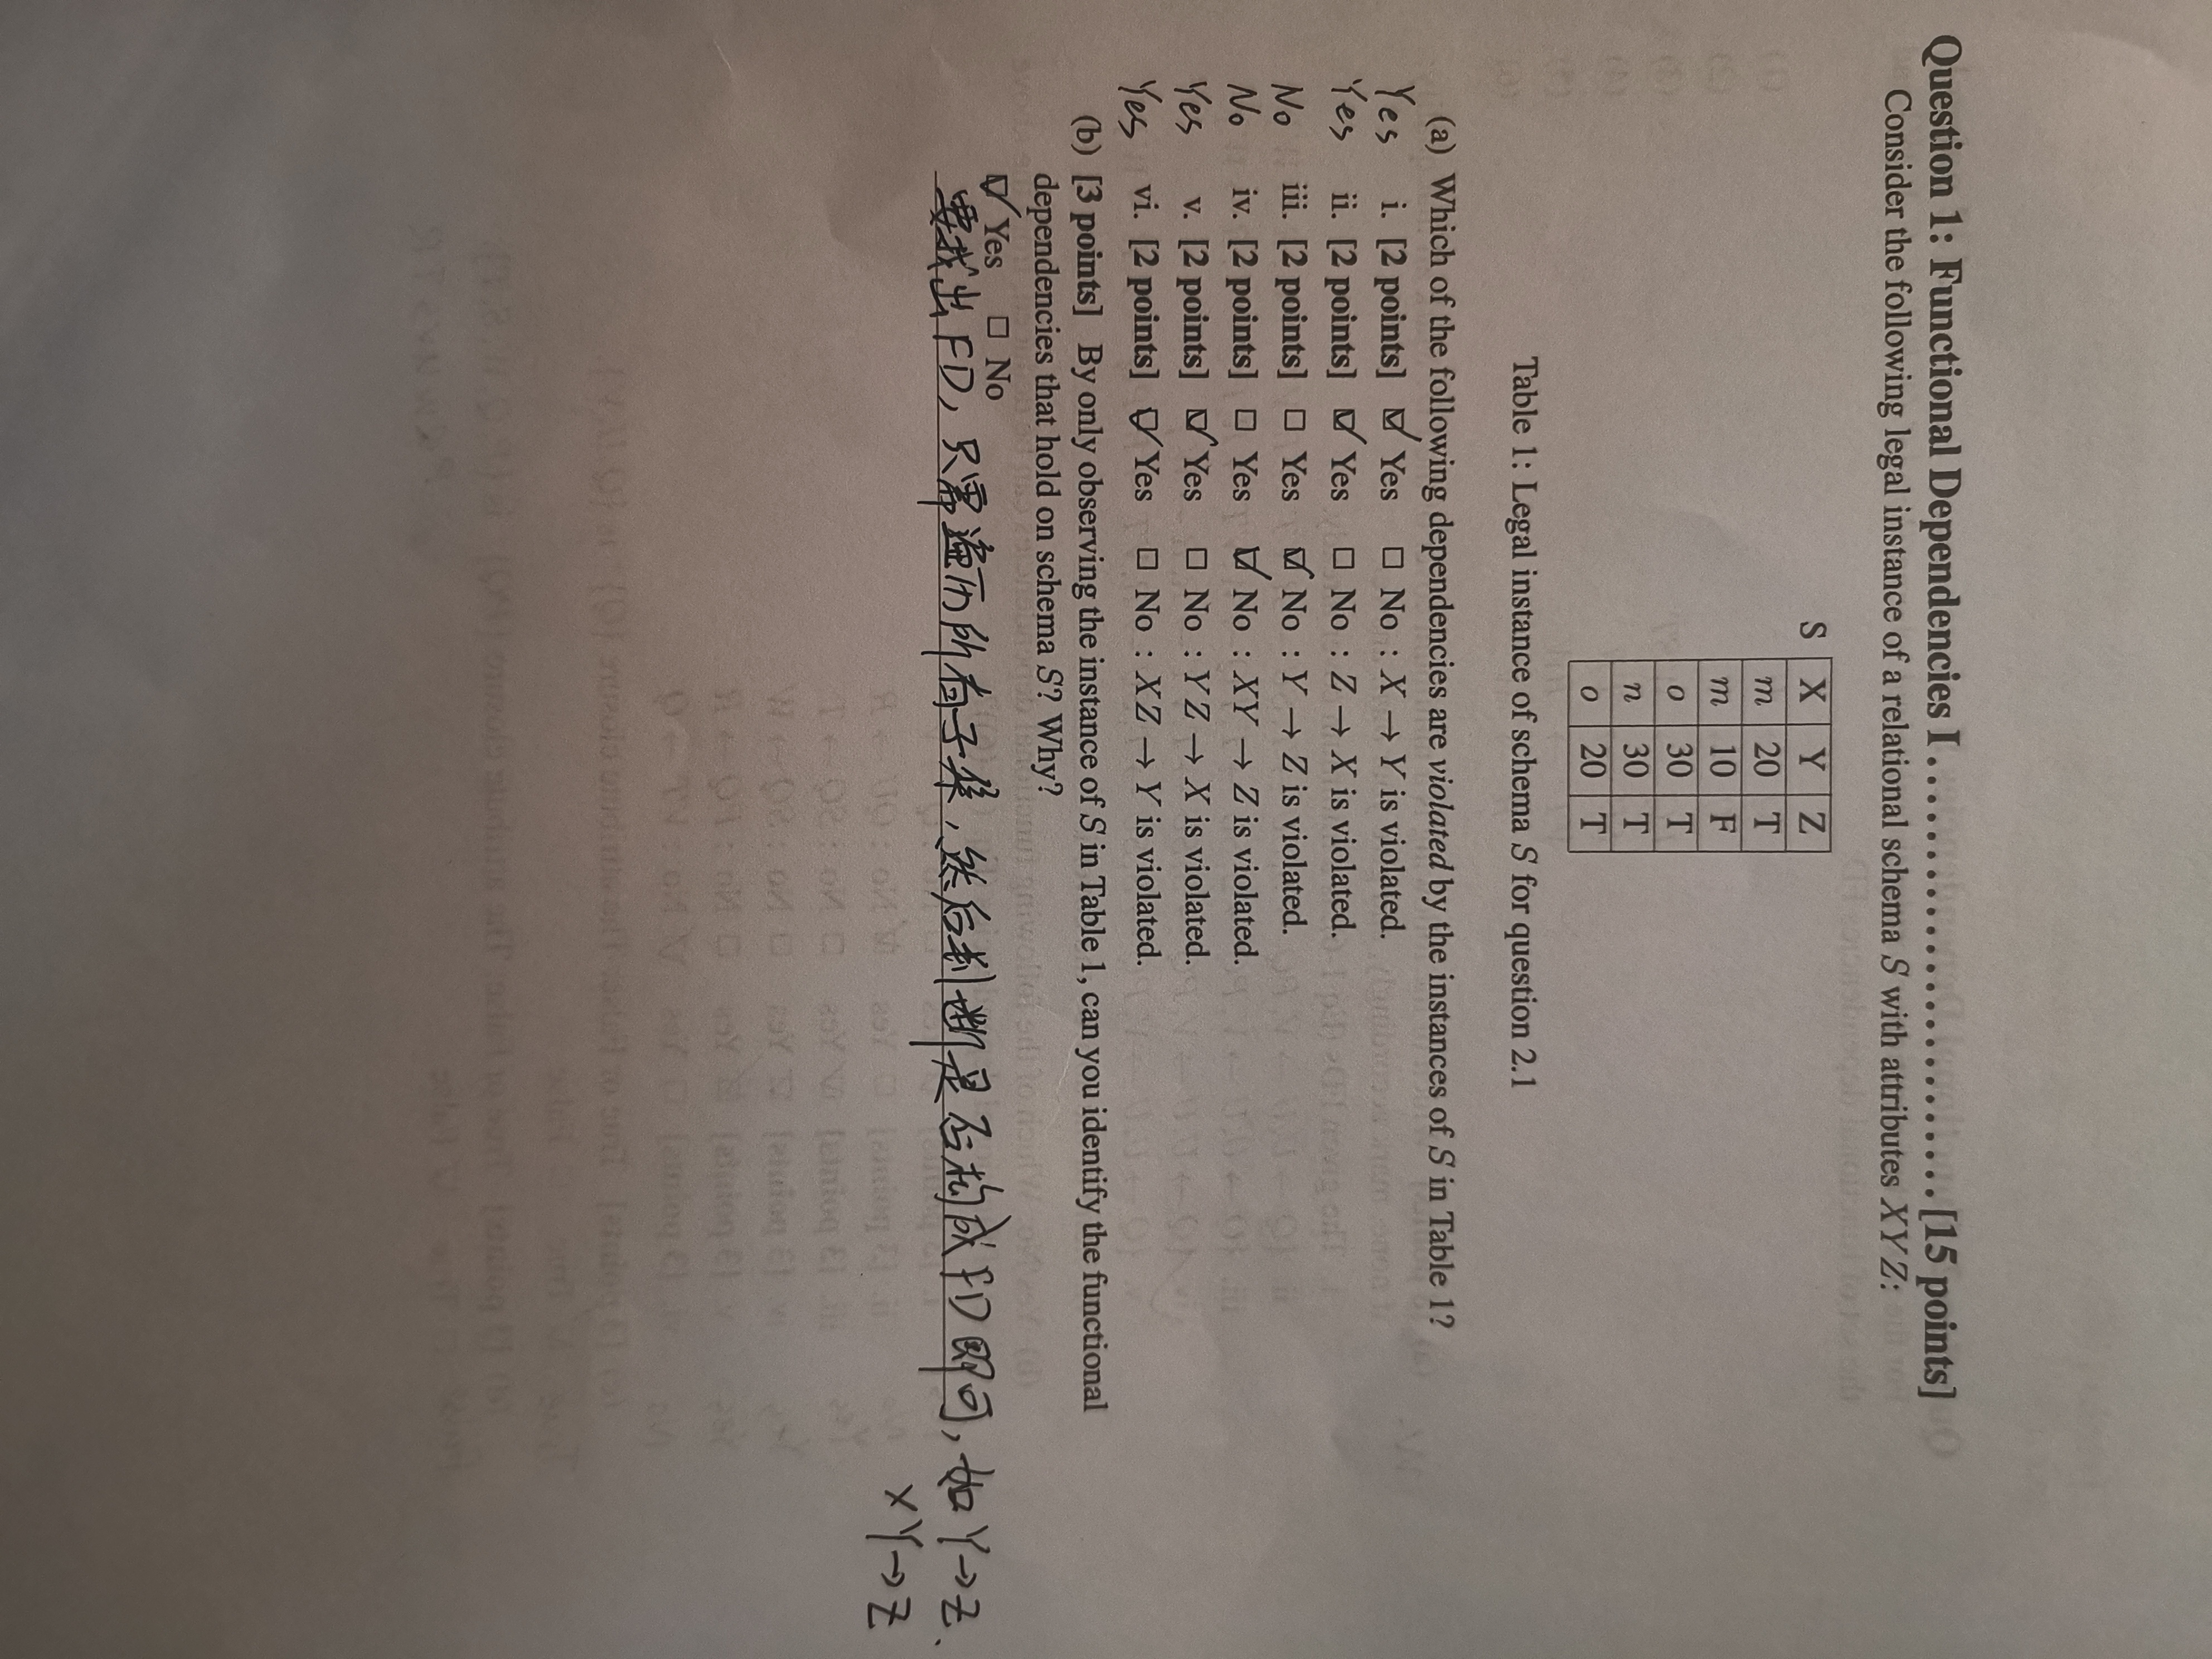 Question 1: Functional Dependencies I ........................ [15 points]
Consider the following legal instance of a relational schema S with attributes XYZ:
S X Y Z
m 20 T
m 10 F
o 30 T
n 30 T
o 20 T
Table 1: Legal instance of schema S for question 2.1
(a) Which of the following dependencies are violated by the instances of S in Table 1?
Yes i. [2 points] ☑ Yes ☐ No : X → Y is violated.
Yes ii. [2 points] ☑ Yes ☐ No : Z → X is violated.
No iii. [2 points] ☐ Yes ☑ No : Y → Z is violated.
No iv. [2 points] ☐ Yes ☑ No : XY → Z is violated.
Yes v. [2 points] ☑ Yes ☐ No : YZ → X is violated.
Yes vi. [2 points] ☑ Yes ☐ No : XZ → Y is violated.
(b) [3 points] By only observing the instance of S in Table 1, can you identify the functional
dependencies that hold on schema S? Why?
☑ Yes ☐ No
要找出FD,只需遍历所有子集,然后判断是否构成FD即可,如Y→Z、
XY→Z